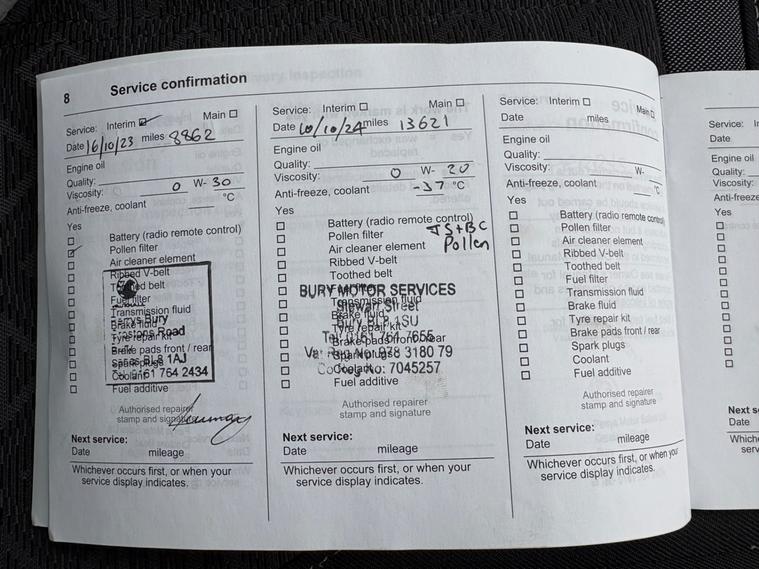 8 Service confirmation
Service: Interim Main
Date 16/10/23 miles 8862
Engine oil
Quality:
Viscosity: 0 W- 30
Anti-freeze, coolant °C
Yes
Battery (radio remote control)
Pollen filter
Air cleaner element
Ribbed V-belt
Toothed belt
Fuel filter
Transmission fluid
Brake fluid
Tyre repair kit
Brake pads front / rear
Spark plugs
Coolant
Fuel additive
Bury
Road
BL8 1AJ
0161 764 2434
Authorised repairer
stamp and signature
Next service:
Date mileage
Whichever occurs first, or when your
service display indicates.
Service: Interim Main
Date 10/10/24 miles 13621
Engine oil
Quality:
Viscosity: 0 W- 20
Anti-freeze, coolant -37 °C
Yes
Battery (radio remote control)
Pollen filter
Air cleaner element
JS+BC
Pollen
Ribbed V-belt
Toothed belt
Fuel filter
Transmission fluid
Brake fluid
Tyre repair kit
Brake pads front / rear
Spark plugs
Coolant
Fuel additive
BURY MOTOR SERVICES
Street
Bury BL8 1SU
Tel 0161 764 7655
Vat Reg No 978 3180 79
Co Reg No: 7045257
Authorised repairer
stamp and signature
Next service:
Date mileage
Whichever occurs first, or when your
service display indicates.
Service: Interim Main
Date miles
Engine oil
Quality:
Viscosity: W-
Anti-freeze, coolant °C
Yes
Battery (radio remote control)
Pollen filter
Air cleaner element
Ribbed V-belt
Toothed belt
Fuel filter
Transmission fluid
Brake fluid
Tyre repair kit
Brake pads front / rear
Spark plugs
Coolant
Fuel additive
Authorised repairer
stamp and signature
Next service:
Date mileage
Whichever occurs first, or when your
service display indicates.
Service:
Date
Engine oil
Quality:
Viscosity:
Anti-freeze
Yes
Next
Date
Which